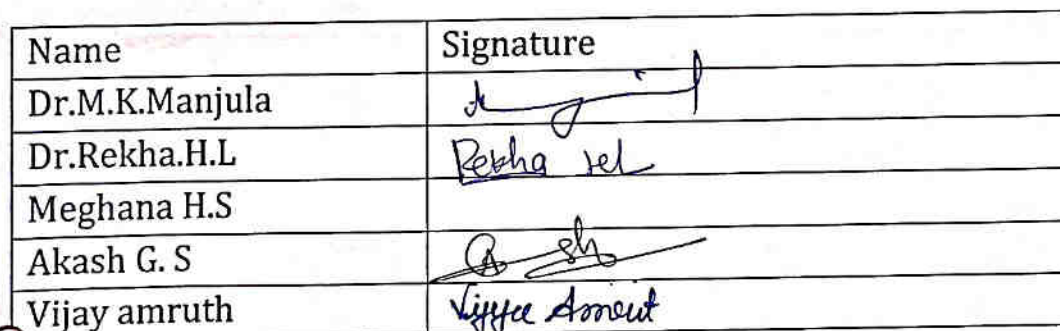 Name Signature
Dr.M.K.Manjula
Dr.Rekha.H.L Rekha
Meghana H.S
Akash G. S
Vijay amruth